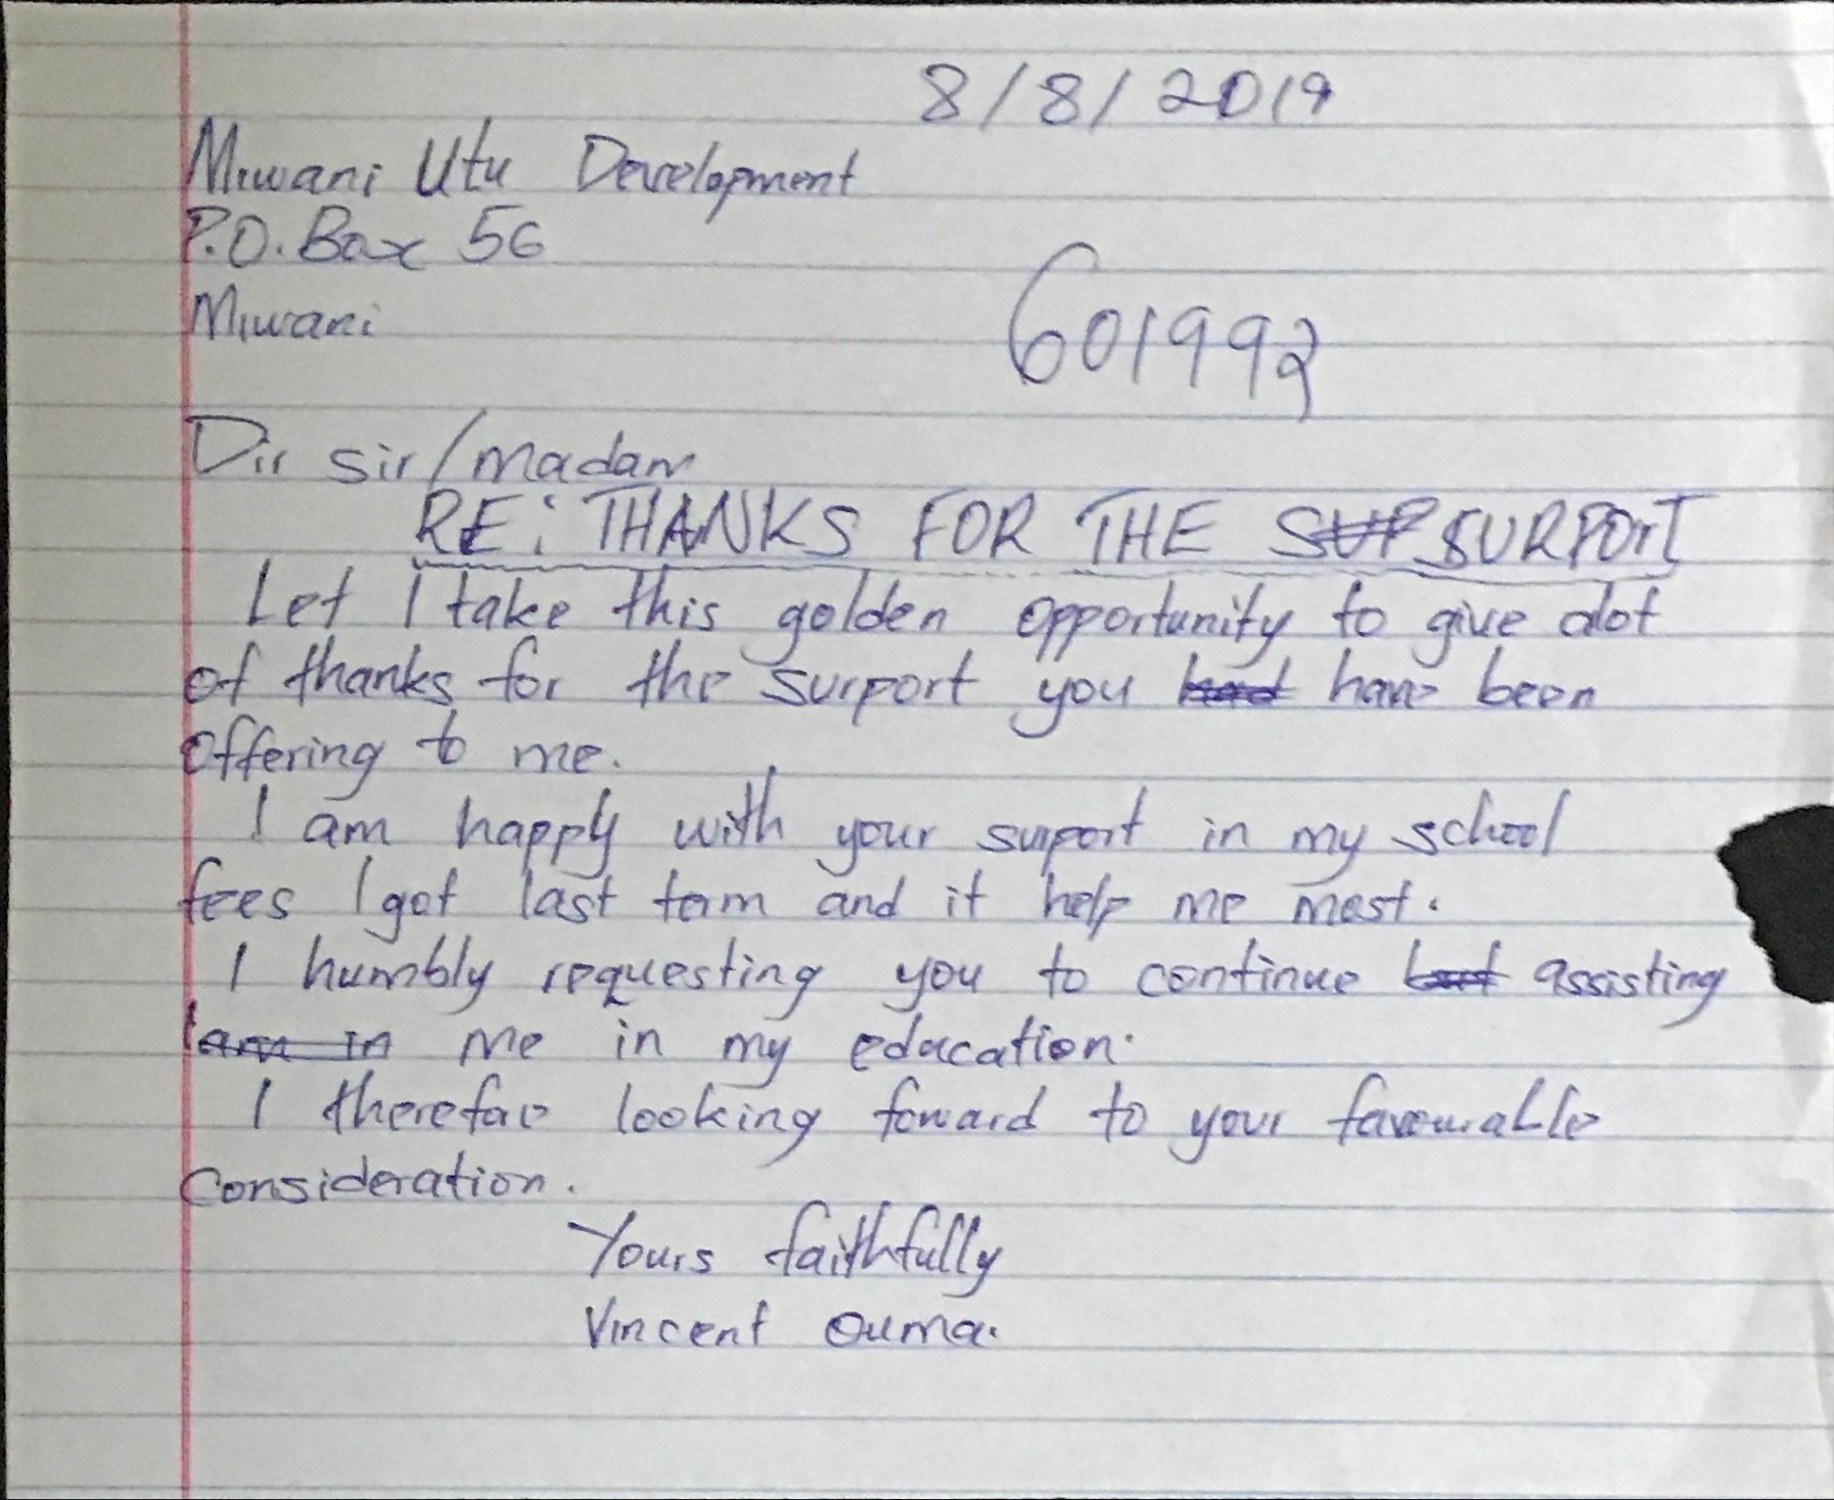 8/8/2019
Miwani Utu Development
P.O. Box 56
Miwani
601992
Dir sir/madam
RE: THANKS FOR THE SUP SURPORT
Let I take this golden opportunity to give alot
of thanks for the surport you had have been
offering to me.
I am happy with your surport in my school
fees I got last term and it help me most.
I humbly requesting you to continue assisting
I am in me in my education.
I therefore looking foward to your favourable
consideration.
Yours faithfully
Vincent Ouma.